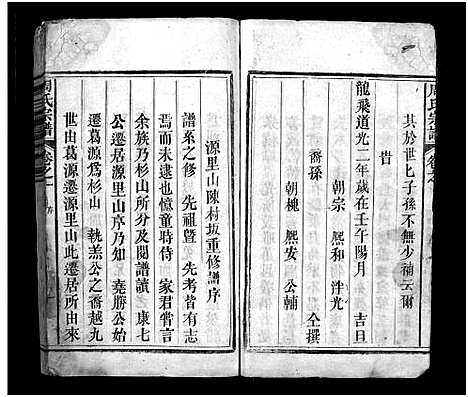 周氏宗譜
其於世匕子孫不無少補云爾
皆
龍飛道光二年歲在壬午陽月 吉旦
朝宗 熙和 泮光
裔孫 仝撰
朝槐 熙安 公輔
源里山陳村坂重修譜序
譜系之修 先祖暨 先考皆有志
焉而未逮也憶童時侍 家君嘗言
余族乃杉山所分及閱譜讀 康七
公遷居源里山序乃知 堯勝公始
遷葛源爲杉山 執羔公之裔越九
世由葛源遷源里山此遷居所由來
周氏宗譜
卷之一